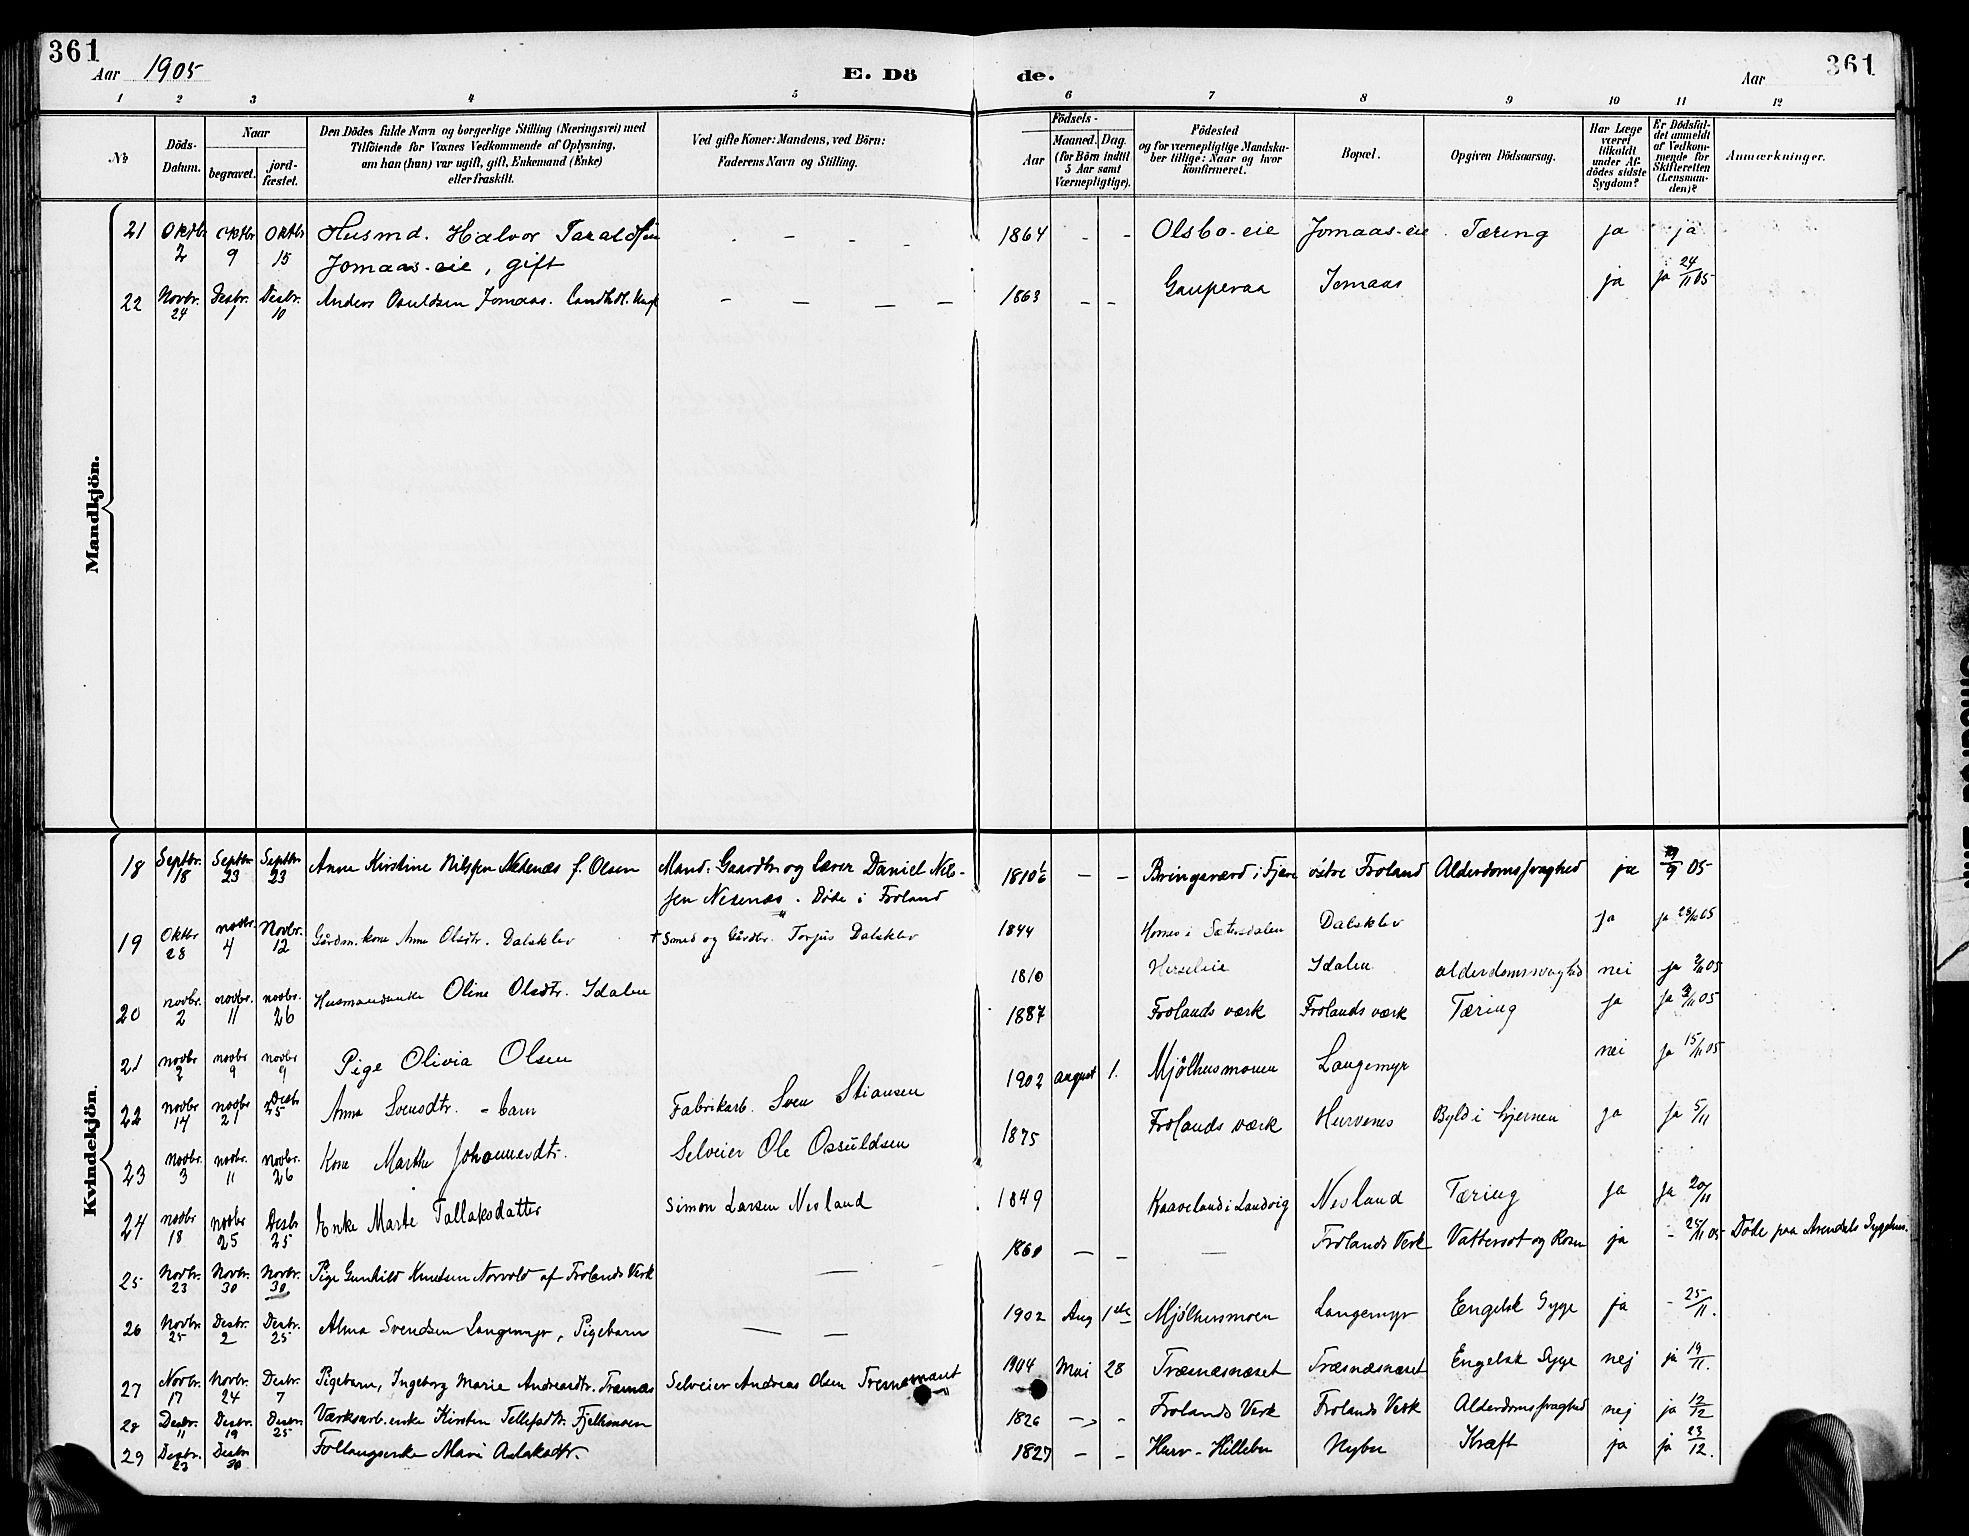 361
Aar 1905
E. Dö
de.
Aar
361
1 2 3 4 5 6 7 8 9 10 11 12
No
Döds-
Datum.
Naar
begravet.
jord-
fæstet.
Den Dödes fulde Navn og borgerlige Stilling (Næringsvei) med
Tilföiende for Voxnes Vedkommende af Oplysning,
om han (hun) var ugift, gift, Enkemand (Enke)
eller fraskilt.
Ved gifte Koner: Mandens, ved Börn:
Faderens Navn og Stilling.
Födsels-
Aar
Maaned. Dag.
(for Börn indtil
5 Aar samt
Værnepligtige).
Födested
og for værnepligtige Mandska-
ber tillige: Naar og hvor
konfirmeret.
Bopæl.
Opgiven Dödsaarsag.
Har Læge
været
tilkaldt
under Af-
dödes sidste
Sygdom?
Er Dödsfal-
det anmeldt
af Vedkom-
mende for
Skifteretten
(Lensman-
den)?
Anmærkninger.
Mandkjön.
21 Oktbr. 2 Oktbr 9 Oktbr 15 Husmd. Halvor Taraldsen - - - - 1864 - - Olsbo-eie Jomaas-eie Tæring ja ja
Jomaas-eie, gift
22 Novbr. 24 Desbr. 1 Desbr. 10 Anders Osuldsen Jomaas. - - - - 1863 - - Gauperaa Jomaas ja ja 24/11 05
Kvindekjön.
18 Septbr. 18 Septbr 23 Septbr 23 Anne Kirstine Nilssen Nesenæs f. Olsen Mand: Gaardbr. og Lærer Daniel Nil- 1810 - - Bringsværd i Fjære östre Froland Alderdomssvaghed ja 05
sen Nesenæs. Döde i Froland
19 Oktbr 28 novbr. 4 Novbr. 12 Gårdm. kone Anne Olsdtr. Dalsklev † Smed og Gårdbr. Torjus Dalsklev 1844 Hornes i Sætersdalen Dalsklev ja ja 29/10 05
20 novbr. 2 novbr. 11 novbr. 26 Husmandsenke Oline Olsdtr. Idalen 1810 Idalen alderdomssvaghed nei ja 05
21 novbr 2 novbr 9 novbr 9 Pige Olivia Olsen 1887 Frolands værk Frolands værk Tæring ja ja 3/11 05
22 novbr 14 novbr 21 Desbr 25 Anna Svensdtr. - barn Fabrikarb. Sven Stiansen 1902 august 1. Mjölhusmonen Langemyr nei ja 15/11 05
23 novbr. 3 novbr. 11 novbr. 26 Kone Marthe Johannesdtr. Selveier Ole Ossuldsen 1875 Frolands værk Hurvenes Byld i hjernen ja ja 5/11
24 novbr 18 novbr 25 Desbr 25 Enke Marte Tallaksdatter Simon Larsen Nesland 1849 Kaaveland i Landvig Nesland Tæring ja ja 20/11
25 Novbr. 23 Novbr. 30 Novbr. 30 Pige Gunhild Knutsen Norvold af Frolands Verk - 1860 - - - Frolands Verk Vattersot og Rosen ja - 25/11 05 Döde paa Arendals Sygehus.
26 Novbr. 25 Desbr. 2 Desbr. 25 Alma Svendsen Langemyr, Pigebarn - - 1902 Aug 1ste Mjölhusmoen Langemyr Engelsk Syge ja - 25/11.
27 Novbr. 17 Novbr. 24 Desbr. 7 Pigebarn, Ingeborg Marie Andreasdtr. Trænæs Selveier Andreas Olsen Tresnæsnæset 1904 Mai 28 Træsnæsnæset Træsnæsnæset Engelsk Syge nej ja 19/11.
28 Desbr. 11 Desbr. 19 Desbr. 25 Værksarb. enke Kirsten Tellefsdtr. Fjelhomoen 1826 - - Frolands Verk Frolands Verk Alderdomssvaghed nej ja 12/12
29 Desbr. 23 Desbr 30 Marie Aslaksdtr. 1827 - - Hurv-Hillebu Nybu Kræft ja ja 23/12.